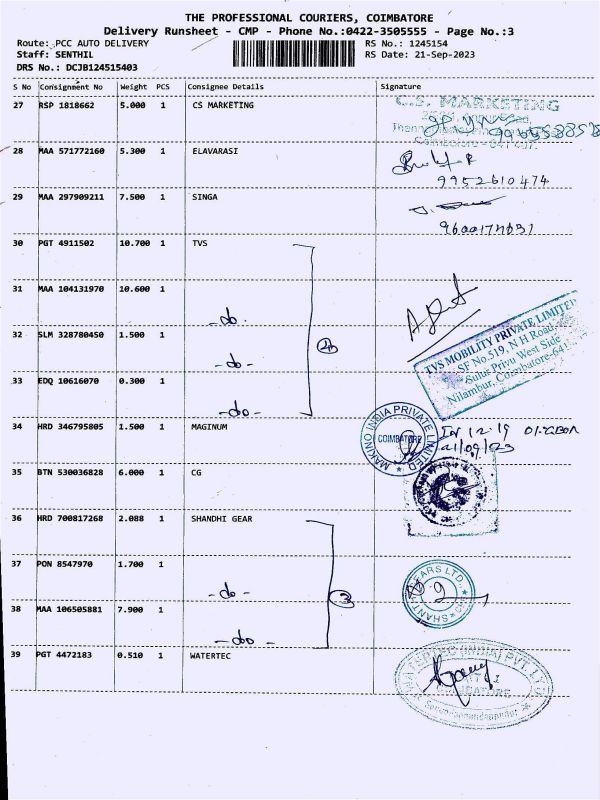 THE PROFESSIONAL COURIERS, COIMBATORE
Delivery Runsheet - CMP - Phone No.:0422-3505555 - Page No.:3
Route: PCC AUTO DELIVERY RS No.: 1245154
Staff: SENTHIL RS Date: 21-Sep-2023
DRS No.: DCJB124515403
S No Consignment No Weight PCS Consignee Details Signature
27 RSP 1818662 5.000 1 CS MARKETING
C.S. MARKETING
Coimbatore - 641
28 MAA 571772160 5.300 1 ELAVARASI
9952610474
29 MAA 297909211 7.500 1 SINGA
30 PGT 4911502 10.700 1 TVS
31 MAA 104131970 10.600 1
-do-
32 SLM 328780450 1.500 1
-do-
4
TVS MOBILITY PRIVATE LIMITED
SF No.519, N H Road,
Sulur Privu West Side
Nilambur, Coimbatore-641
33 EDQ 10616070 0.300 1
-do-
34 HRD 346795805 1.500 1 MAGINUM
MAKINO INDIA PRIVATE LIMITED
COIMBATORE
IN 12.19
21/09/23
35 BTN 530036828 6.000 1 CG
36 HRD 700817268 2.088 1 SHANDHI GEAR
37 PON 8547970 1.700 1
-do-
3
SHANTHI GEARS LTD.
38 MAA 106505881 7.900 1
-do-
39 PGT 4472183 0.510 1 WATERTEC
WATERTEC (INDIA) PVT. LTD.
COIMBATORE